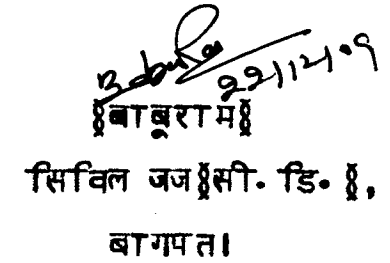 22/12/09
(बाबूराम)
सिविल जज (सी. डि. ),
बागपत।